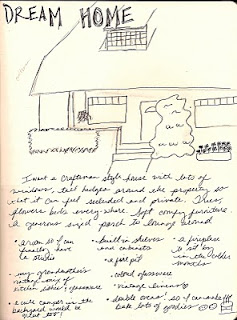 DREAM HOME
I want a Craftsman style house with lots of
windows, tall hedges around the property so
that it can feel secluded and private. Trees,
flowers beds every-where. Soft comfy furniture.
A generous sized porch to lounge around
• a room so I can
actually have
a studio
• my grandmother's
vintage
kitchen table & glassware
• a cute camper in the
backyard would be
nice too!
• built in shelves
and cabinets
• a fire pit
• colored glassware
• vintage linens
• double ovens! so I can
bake lots of goodies
• a fireplace
to sit by
in the colder
months